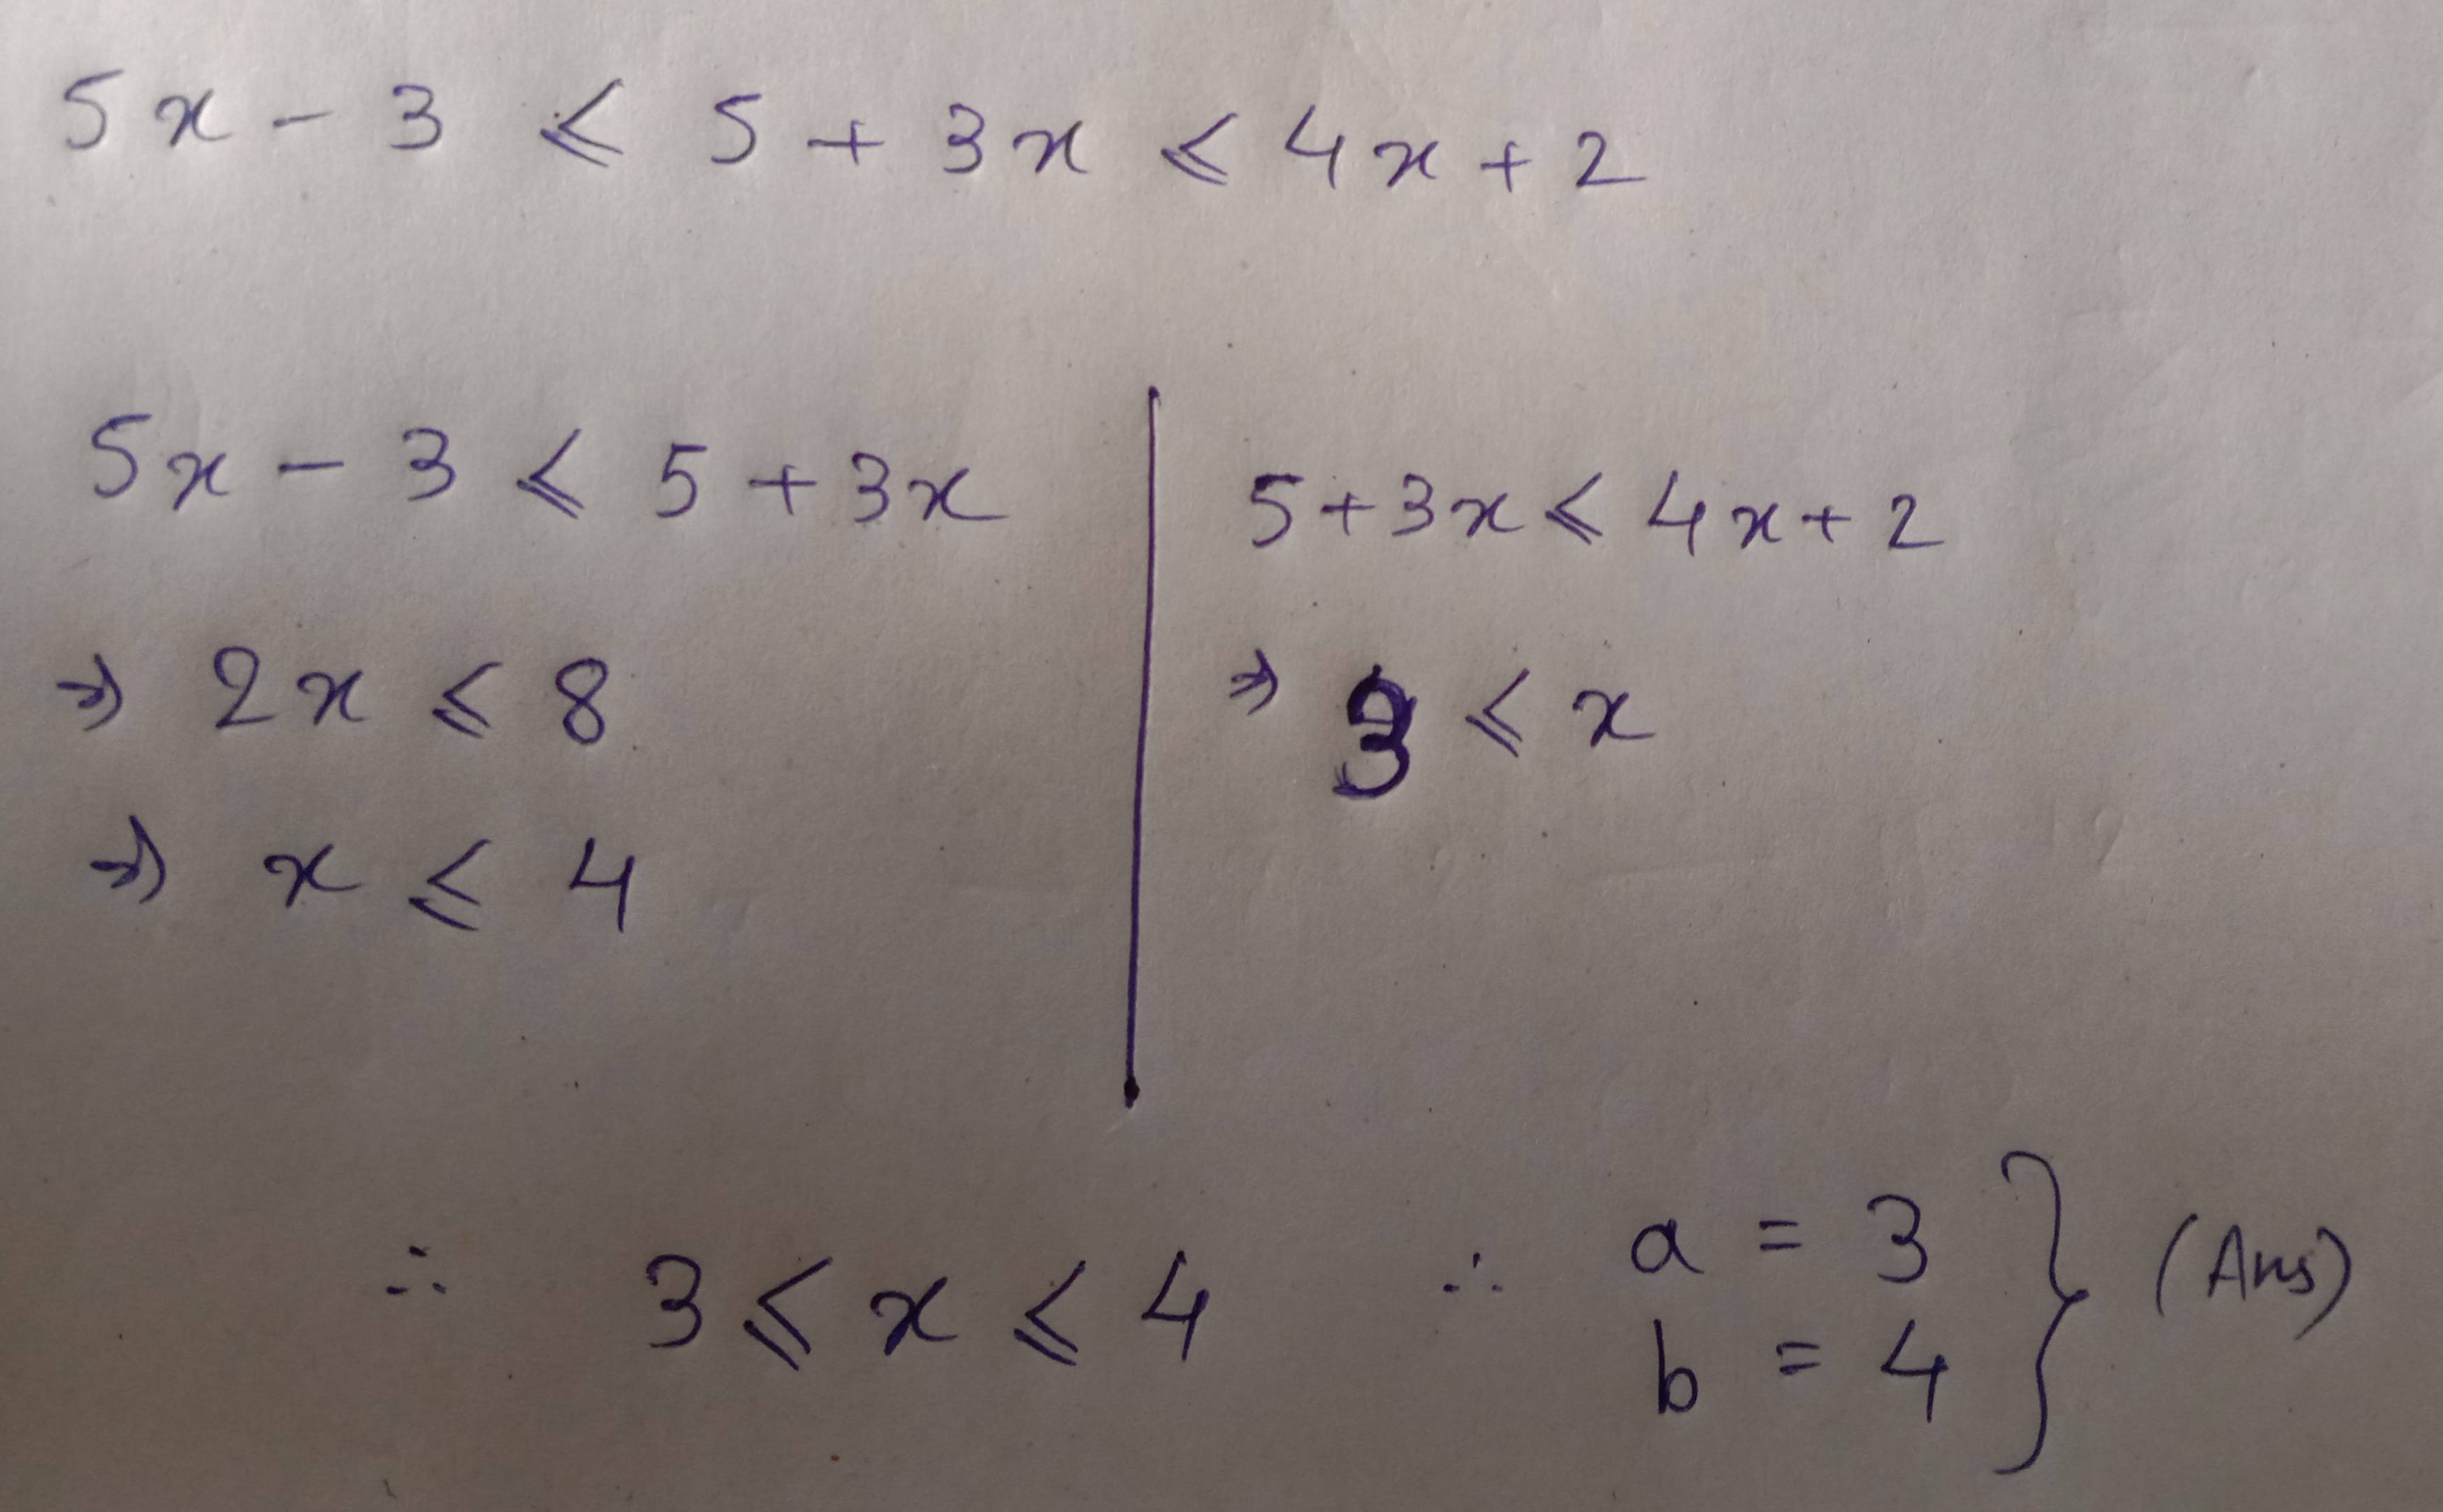 5x - 3 ⩽ 5 + 3x ⩽ 4x + 2
5x - 3 ⩽ 5 + 3x
⇒ 2x ⩽ 8
⇒ x ⩽ 4
5 + 3x ⩽ 4x + 2
⇒ 3 ⩽ x
∴ 3 ⩽ x ⩽ 4 ∴ a = 3
b = 4 } (Ans)